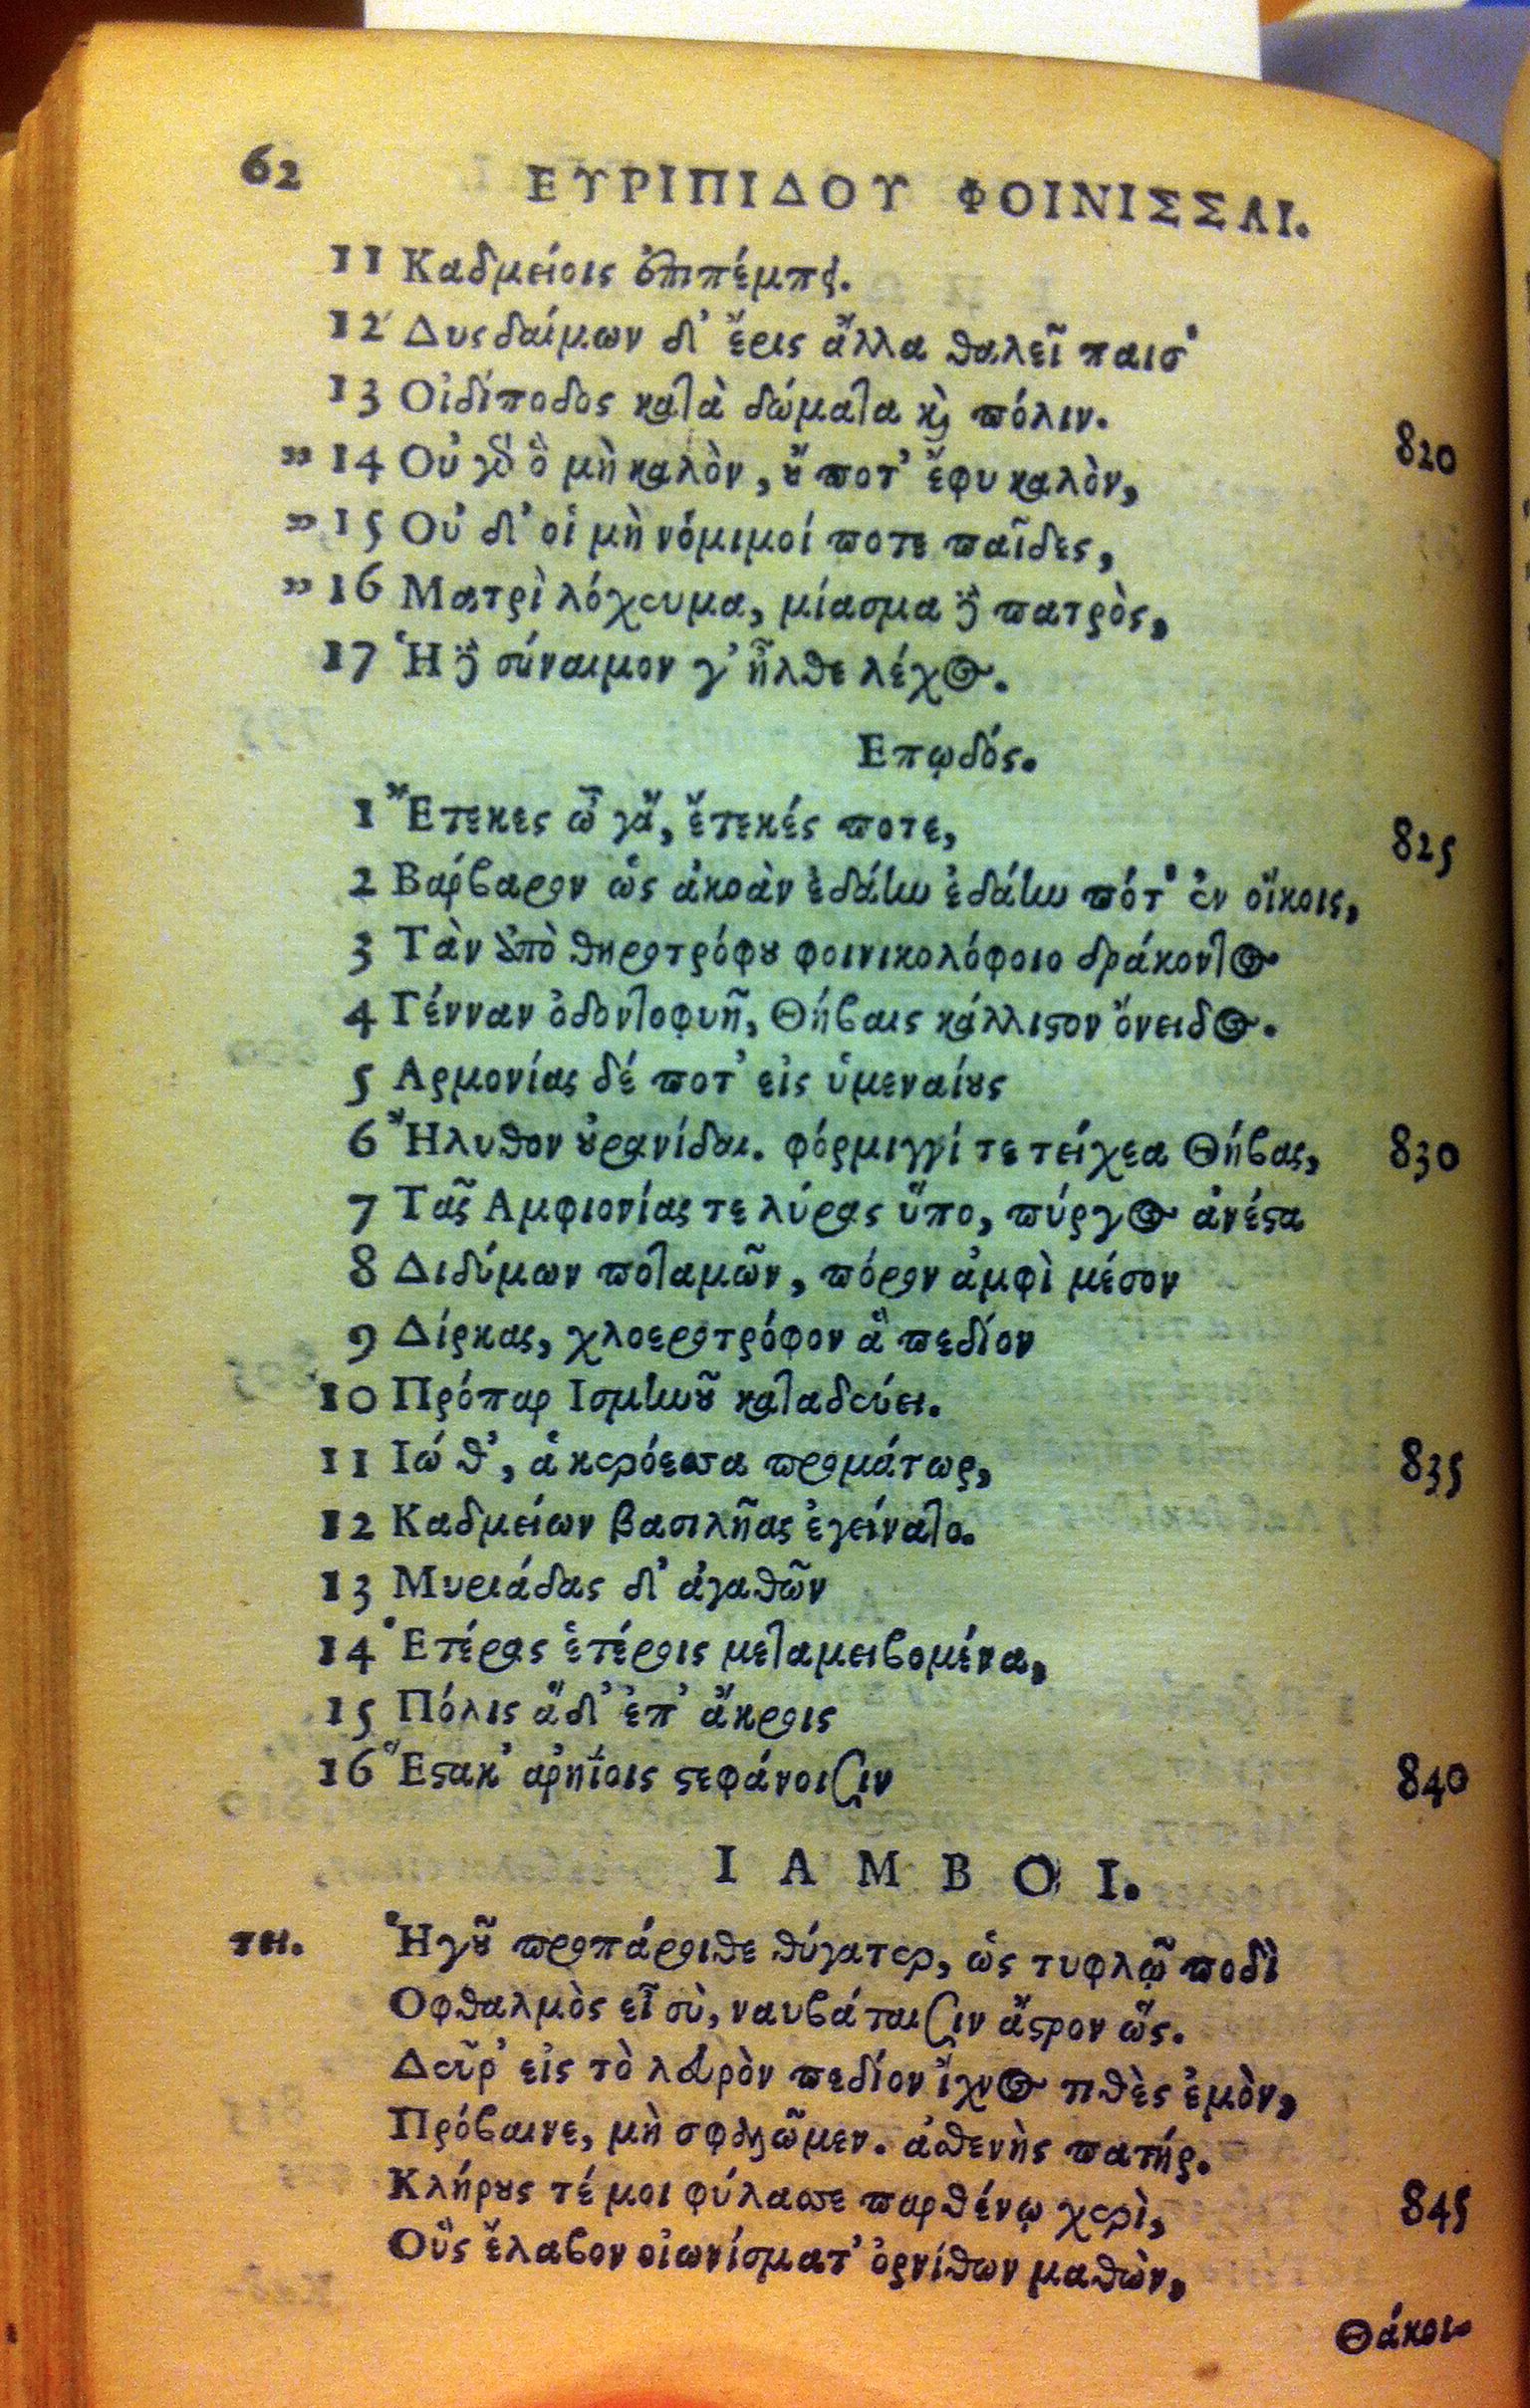 62 ΕΥΡΙΠΙΔΟΥ ΦΟΙΝΙΣΣΑΙ.
11 Καδμείοις ἐπιπέμπει.
12 Δυσδαίμων δ' ἔρις ἄλλα θαλεῖ παισ'
13 Οἰδίποδος κατὰ δώματα κὶ πόλιν. 820
" 14 Οὐ γδ ὃ μὴ καλὸν, ȣ̓́ ποτ' ἔφυ καλὸν,
" 15 Οὐ δ' οἱ μὴ νόμιμοί ποτε παῖδες,
" 16 Ματρὶ λόχευμα, μίασμα ὃ πατρὸς,
17 Ἡ ὃ σύναιμον γ' ἦλθε λέχος.
Επῳδός.
1 Ἔτεκες ὦ γᾶ, ἔτεκές ποτε, 825
2 Βάρβαρον ὡς ἀκοὰν ἐδάην ἐδάην πότ' ἐν οἴκοις,
3 Τὰν ὑπὸ θηροτρόφȣ φοινικολόφοιο δράκοντος
4 Γένναν ὀδοντοφυῆ, Θήβαις κάλλιϛον ὄνειδος.
5 Αρμονίας δέ ποτ' εἰς ὑμεναίȣς
6 Ἤλυθον ȣ̓ρανίδαι. φόρμιγγί τε τείχεα Θήβας, 830
7 Τᾶς Αμφιονίας τε λύρας ὕπο, πύργος ἀνέϛα
8 Διδύμων ποταμῶν, πόρον ἀμφὶ μέσον
9 Δίρκας, χλοεροτρόφον ἃ πεδίον
10 Πρόπαρ Ισμηνȣ͂ καταδεύει.
11 Ιώ θ', ἁ κερόεσσα προμάτωρ, 835
12 Καδμείων βασιλῆας ἐγείνατο.
13 Μυριάδας δ' ἀγαθῶν
14 Ἑτέρας ἑτέροις μεταμειβομένα,
15 Πόλις ἅδ' ἐπ' ἄκροις
16 Ἕϛακ' ἀρηΐοις ϛεφάνοισιν 840
ΙΑΜΒΟΙ.
ΤΗ. Ἡγȣ͂ προπάροιθε θύγατερ, ὡς τυφλῷ ποδὶ
Οφθαλμὸς εἶ σὺ, ναυβάταισιν ἄϛρον ὥς.
Δεῦρ' εἰς τὸ λευρὸν πεδίον ἴχνος τιθὲς ἐμὸν,
Πρόβαινε, μὴ σφαλῶμεν. ἀσθενὴς πατήρ.
Κλήρȣς τέ μοι φύλασσε παρθένῳ χερὶ, 845
Οὓς ἔλαβον οἰωνίσματ' ὀρνίθων μαθὼν,
Θάκοι-